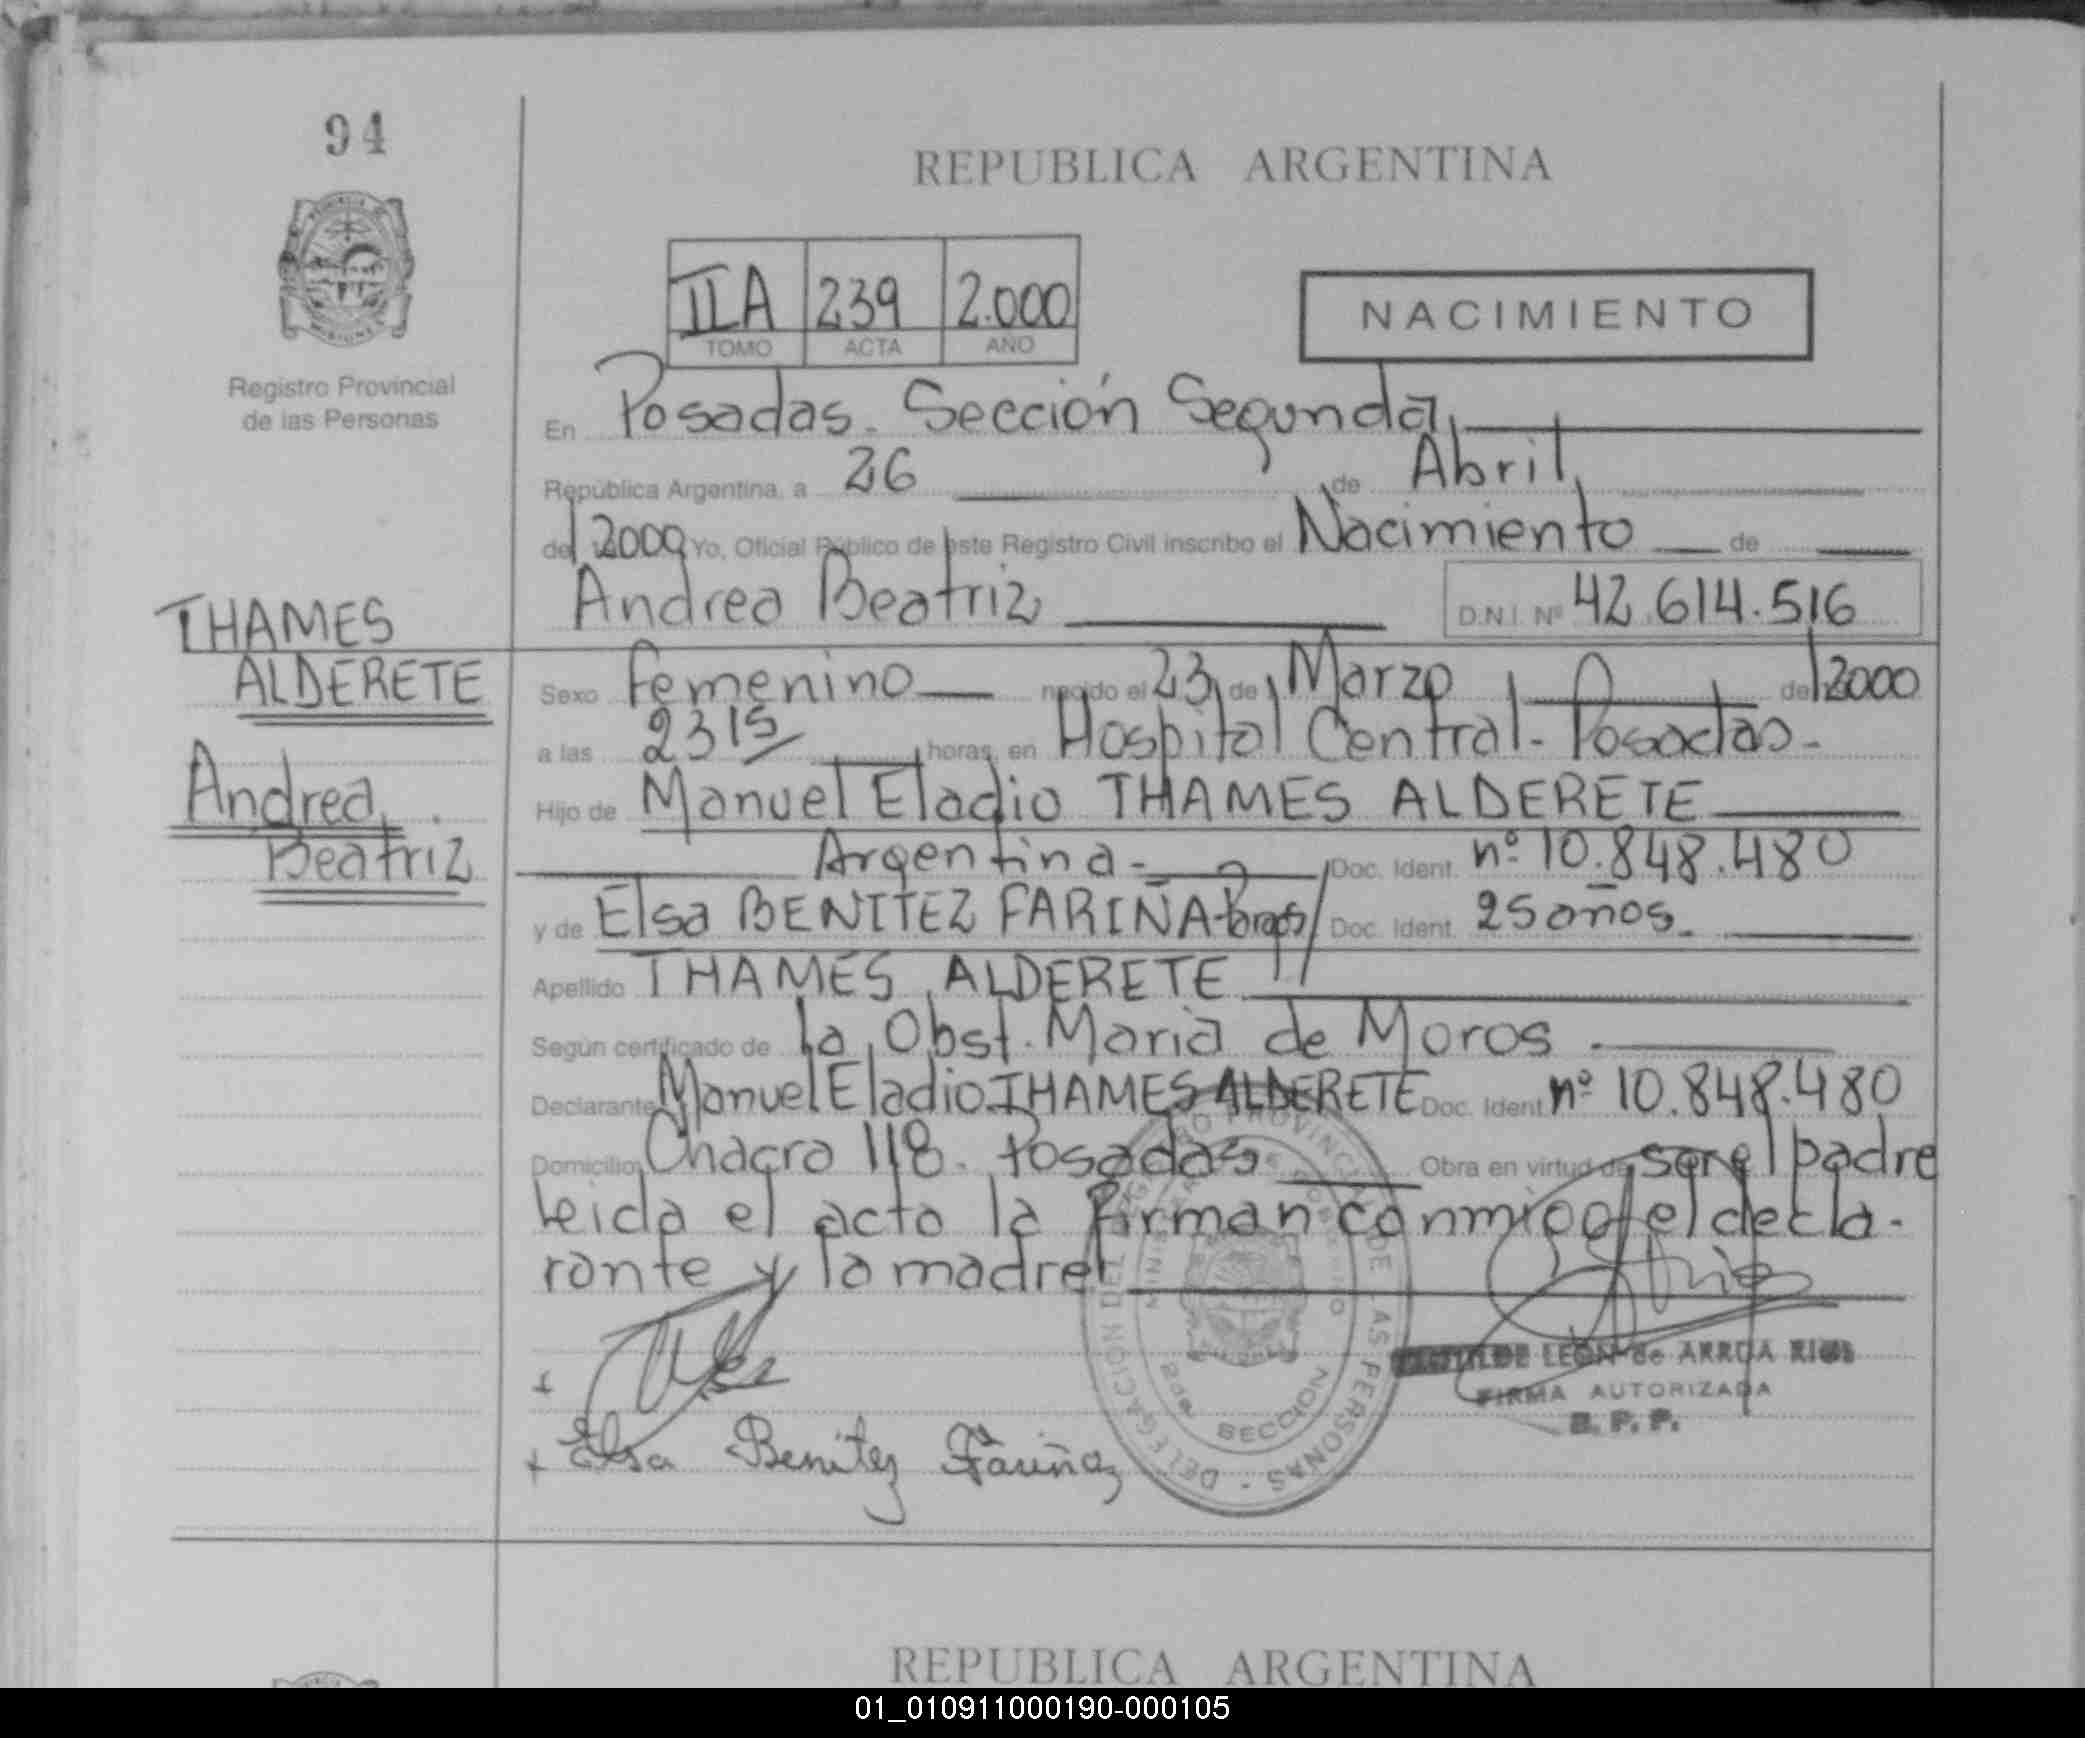 94
REPUBLICA ARGENTINA
IIA 239 2.000
TOMO ACTA AÑO
NACIMIENTO
Registro Provincial
de las Personas
En Posadas. Sección Segunda
República Argentina, a 26 de Abril
del 2000 Yo, Oficial Público de este Registro Civil inscribo el Nacimiento de
Andrea Beatriz D.N.I. Nº 42.614.516
THAMES
ALDERETE
Andrea
Beatriz
Sexo Femenino nacido el 23 de Marzo de 2000
a las 23 15 horas, en Hospital Central - Posadas -
Hijo de Manuel Eladio THAMES ALDERETE
Argentina - Doc. Ident. nº 10.848.480
y de Elsa BENITEZ FARIÑA Doc. Ident. 25 años.
Apellido THAMES ALDERETE
Según certificado de la Obst. Maria de Moros.
Declarante Manuel Eladio THAMES ALDERETE Doc. Ident. nº 10.848.480
Domicilio Chacra 118. Posadas Obra en virtud de ser el padre
leida el acta la firman conmigo el decla-
rante y la madre
LEON de ARRUA RIOS
FIRMA AUTORIZADA
R. P. P.
+
+ Elsa Benitez Fariña
DELEGACION DEL REGISTRO PROVINCIAL DE LAS PERSONAS -
2da SECCION
REPUBLICA ARGENTINA
01_010911000190-000105